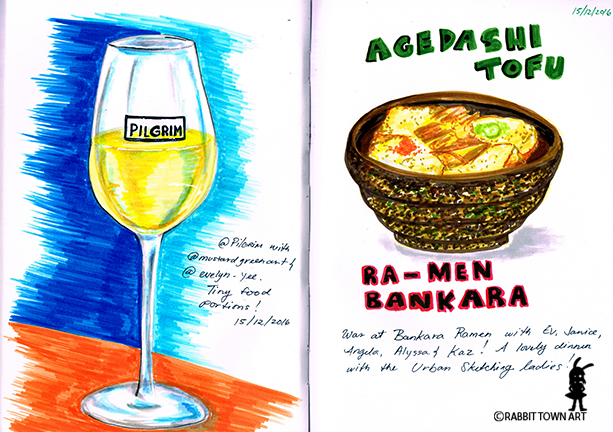 PILGRIM
@Pilgrim with
@mustardgreenant &
@evelyn-yee.
Tiny food
portions!
15/12/2016
15/12/2016
AGEDASHI
TOFU
RA-MEN
BANKARA
Was at Bankara Ramen with Ev, Janice,
Angela, Alyssa & Kaz! A lovely dinner
with the Urban Sketching ladies!
©RABBIT TOWN ART